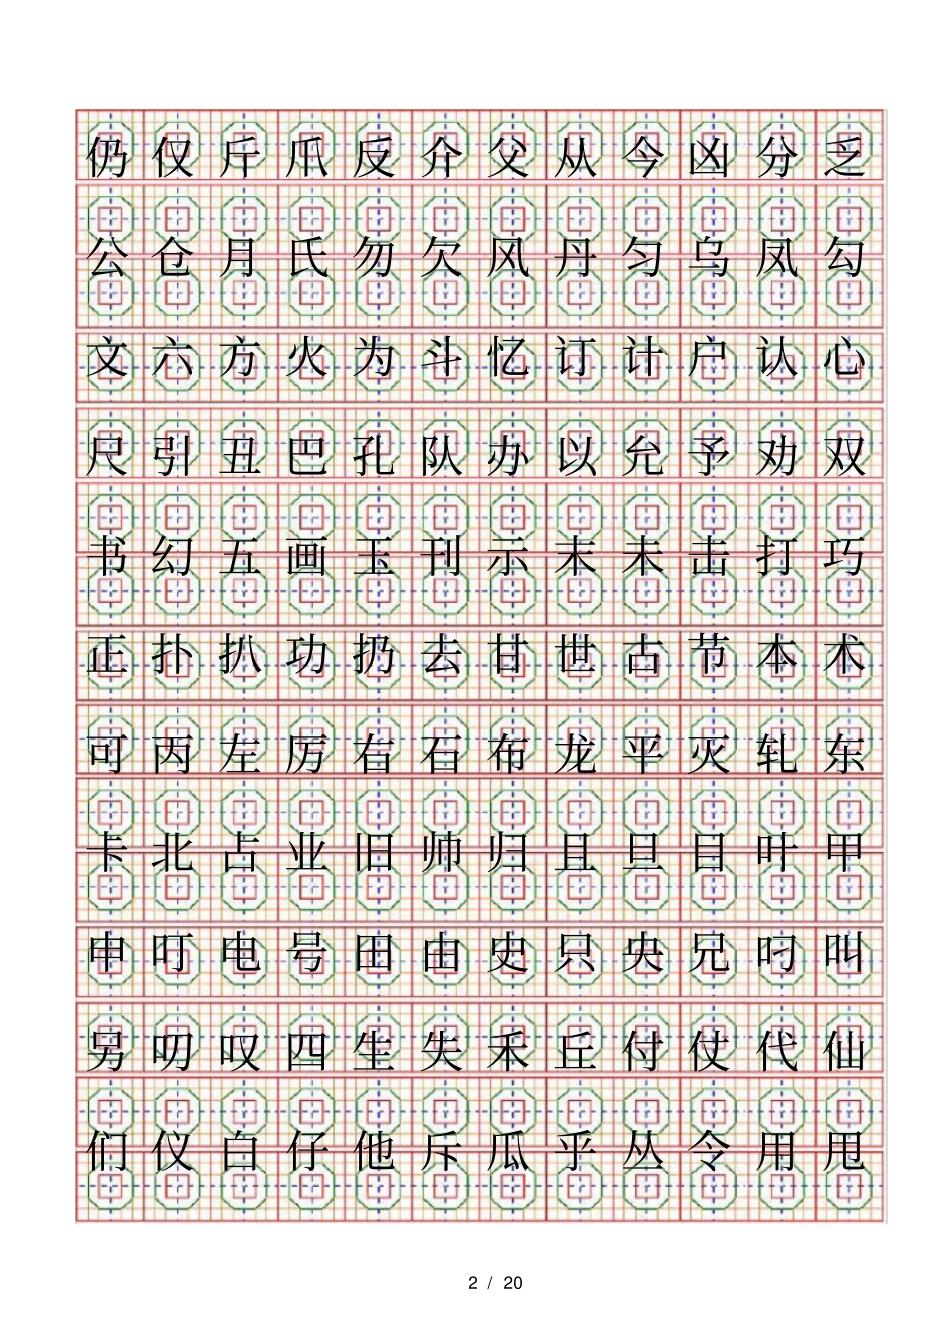 仍 仅 斤 爪 反 介 父 从 今 凶 分 乏
公 仓 月 氏 勿 欠 风 丹 匀 乌 凤 勾
文 六 方 火 为 斗 忆 订 计 户 认 心
尺 引 丑 巴 孔 队 办 以 允 予 劝 双
书 幻 五 画 玉 刊 示 末 未 击 打 巧
正 扑 扒 功 扔 去 甘 世 古 节 本 术
可 丙 左 厉 右 石 布 龙 平 灭 轧 东
卡 北 占 业 旧 帅 归 且 旦 目 叶 甲
申 叮 电 号 田 由 史 只 央 兄 叼 叫
另 叨 叹 四 生 失 禾 丘 付 仗 代 仙
们 仪 白 仔 他 斥 瓜 乎 丛 令 用 甩
2 / 20